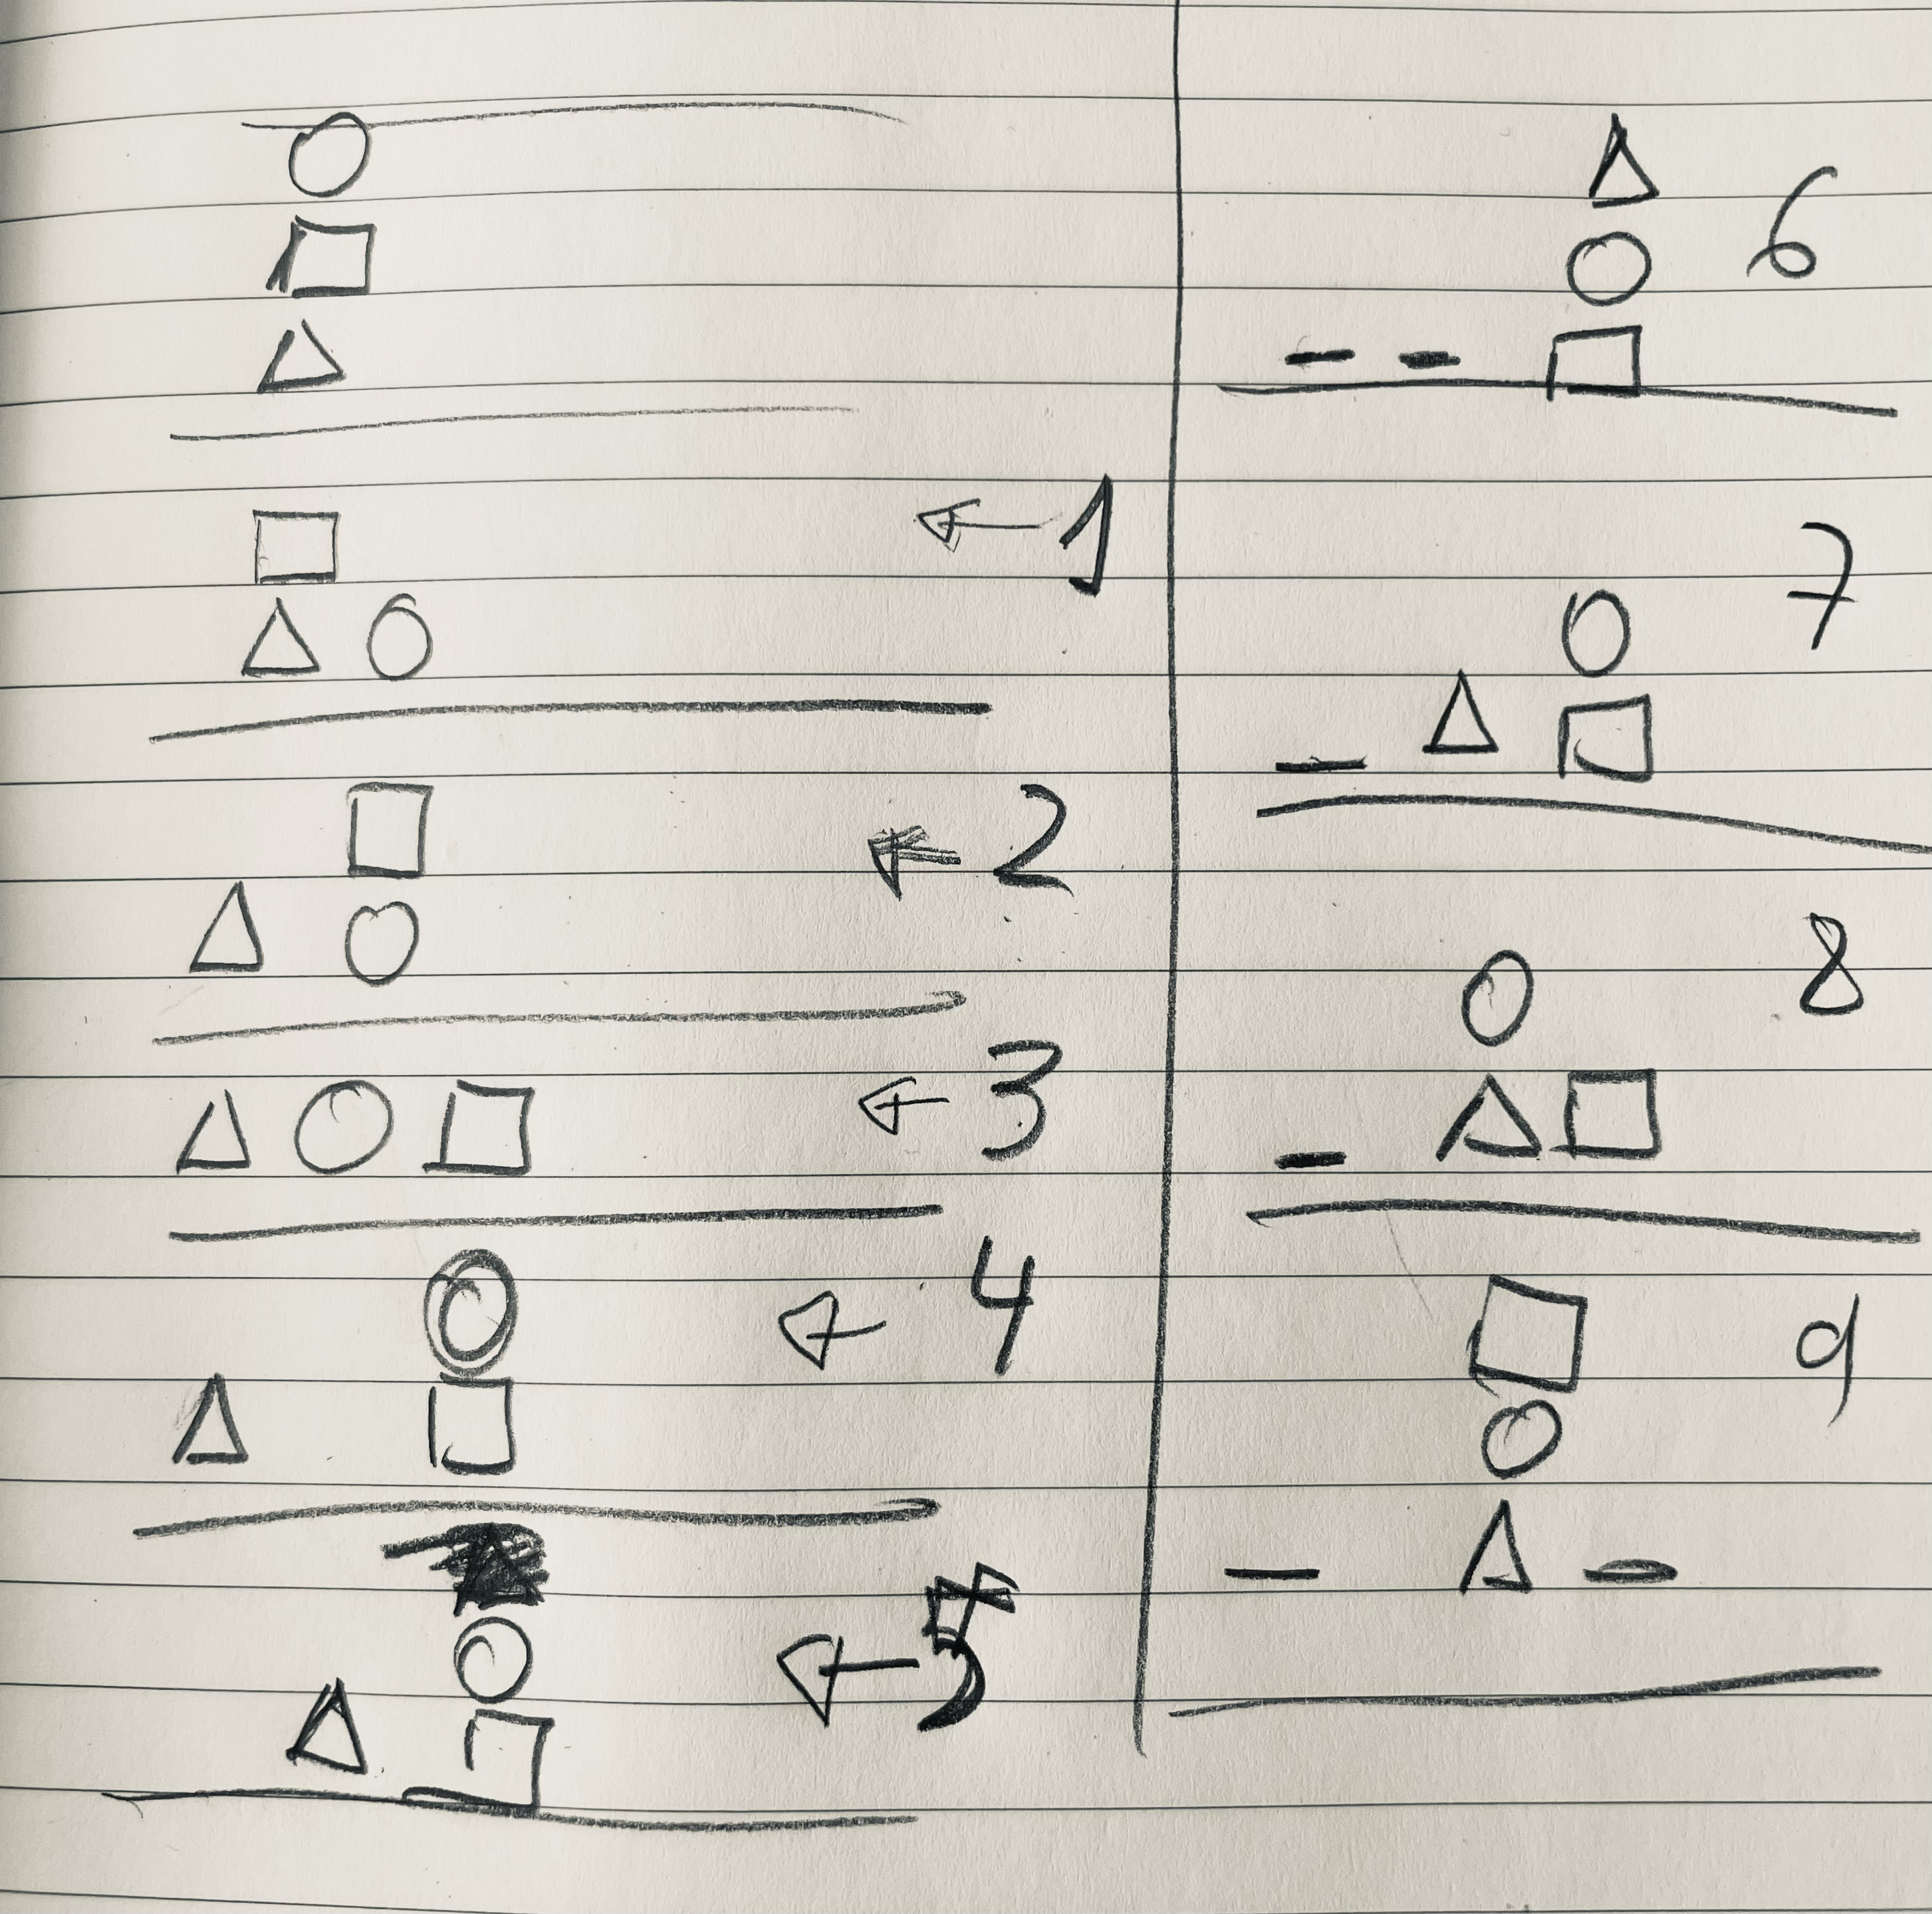 ○
□
△
□ ← 1
△ ○
□ ← 2
△ ○
△ ○ □ ← 3
○ ← 4
△ □
○ ← 5
△ □
△ 6
○
– – □
○ 7
– △ □
○ 8
– △ □
□ 9
○
– △ –